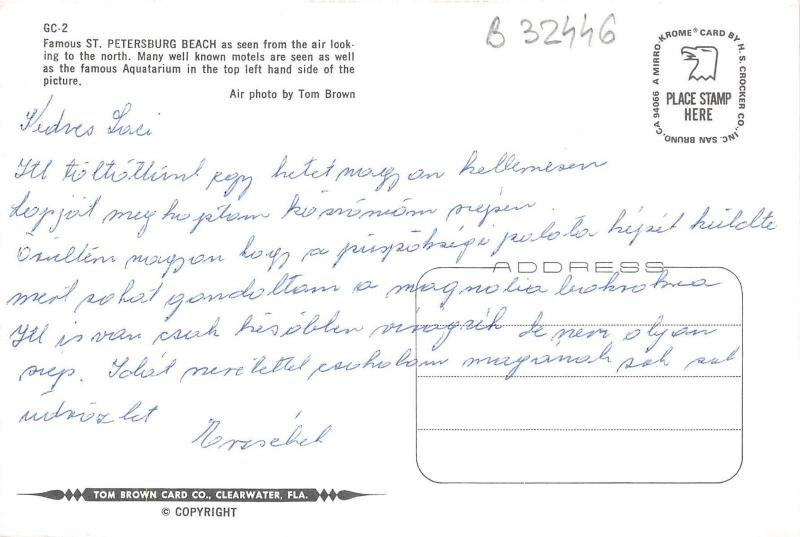 GC-2
Famous ST. PETERSBURG BEACH as seen from the air look-
ing to the north. Many well known motels are seen as well
as the famous Aquatarium in the top left hand side of the
picture.
Air photo by Tom Brown
B 32446
A MIRRO-KROME® CARD BY H. S. CROCKER CO., INC. SAN BRUNO, CA 94066
PLACE STAMP
HERE
Kedves Laci
Itt töltöttünk egy hetet nagyon kellemesen
Lapját megkaptam köszönöm szépen.
Örültem nagyon hogy a püspökségi palota képét küldte
mert sokat gondoltam a magnolia bokrokra
Itt is van csak később virágzik de nem olyan
szép. Idát szeretettel csokolom magának sok
üdvözlet
Erzsébet
ADDRESS
TOM BROWN CARD CO., CLEARWATER, FLA.
© COPYRIGHT